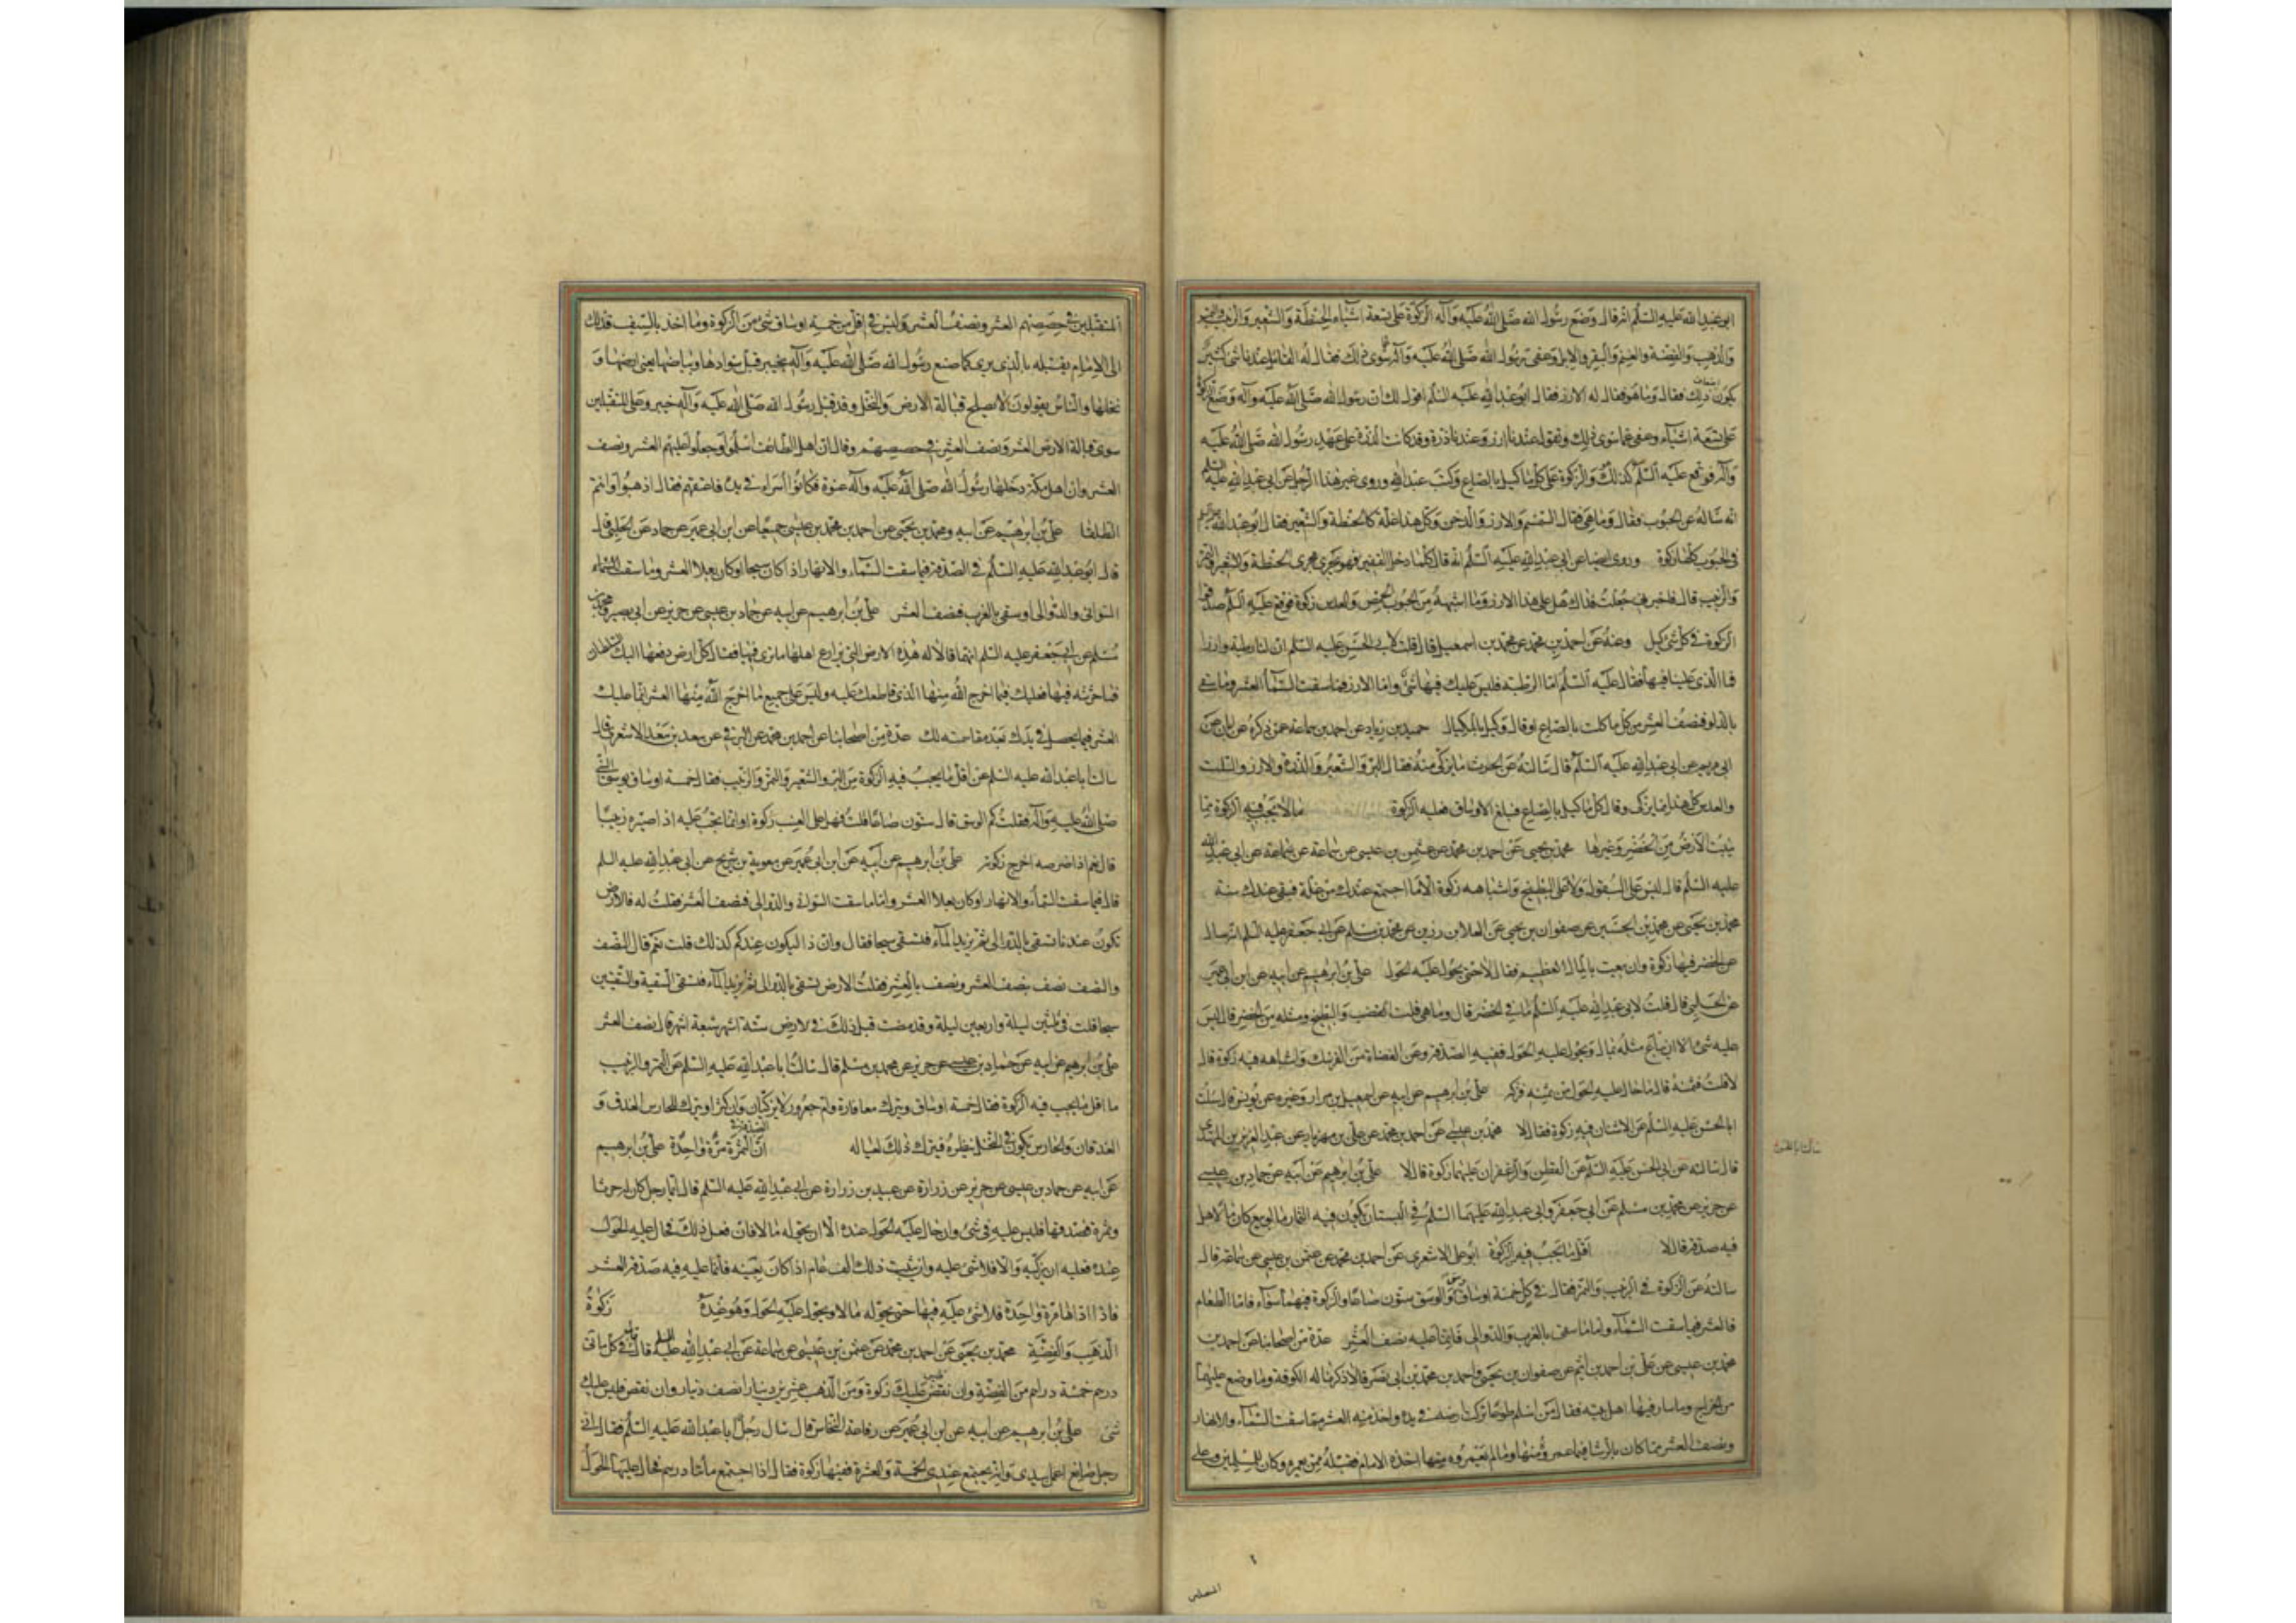 ابو عبد الله عليه السلم انه قال وضع رسول الله صلى الله عليه وآله الزكوة على تسعة اشياء الحنطة والشعير والتمر والزبيب
والذهب والفضة والغنم والبقر والابل وعفى رسول الله صلى الله عليه وآله عما سوى ذلك فقال له القائل عندنا شئ كثير
يكون اضعاف ذلك فقال وما هو فقال له الارز فقال ابو عبد الله عليه السلم اقول لك ان رسول الله صلى الله عليه وآله وضع الزكوة
على تسعة اشياء وعفى عما سوى ذلك وتقول عندنا ارز وعندنا ذرة وقد كانت الذرة على عهد رسول الله صلى الله عليه
وآله فوقع عليه السلم كذلك هو والزكوة على كل ما كيل بالصاع وكتب عبد الله وروى غير هذا الرجل عن ابي عبد الله عليه السلم
انه ساله عن الحبوب فقال وما هي فقال السمسم والارز والدخن وكل هذا غلة كالحنطة والشعير فقال ابو عبد الله عليه السلم
في الحبوب كلها زكوة وروى ايضا عن ابي عبد الله عليه السلم انه قال كلما دخل القفيز فهو يجري مجرى الحنطة والشعير والتمر
والزبيب قال فاخبرني جعلت فداك هل على هذا الارز وما اشبهه من الحبوب الحمص والعدس زكوة فوقع عليه السلم صدقوا
الزكوة في كل شئ كيل وعنه عن احمد بن محمد عن محمد بن اسمعيل قال قلت لابي الحسن عليه السلم ان لنا رطبة وارزا
فما الذي علينا فيها فقال عليه السلم اما الرطبة فليس عليك فيها شئ واما الارز فما سقت السماء العشر وما سقي
بالدلو فنصف العشر من كل ما كلت بالصاع او قال وكيل بالمكيال حميد بن زياد عن احمد بن سماعة عمن ذكره عن ابان عن
ابي مريم عن ابي عبد الله عليه السلم قال سالته عن الحرث ما يزكى منه فقال البر والشعير والذرة والارز والسلت
والعدس كل هذا مما يزكى وقال كل ما كيل بالصاع فبلغ الاوساق فعليه الزكوة ما لا يجب فيه الزكوة مما
ينبت الارض من الخضر وغيرها محمد بن يحيى عن احمد بن محمد عن عثمن بن عيسى عن سماعة عن ابي عبد الله
عليه السلم قال ليس على البقول ولا على البطيخ واشباهه زكوة الا ما اجتمع عندك من غلة فبقي عندك سنة
محمد بن يحيى عن محمد بن الحسين عن صفوان بن يحيى عن العلا بن رزين عن محمد بن مسلم عن ابي جعفر عليه السلم انه سال
عن الخضر فيها زكوة وان بيعت بالمال العظيم فقال لا حتى يحول عليه الحول علي بن ابرهيم عن ابيه عن ابن ابي عمير
عن الحلبي قال قلت لابي عبد الله عليه السلم ما في الخضر قال وما هي قلت القضب والبطيخ ومثله من الخضر قال ليس
عليه شئ الا ان يباع مثله بمال ويحول عليه الحول ففيه الصدقة وعن الغضاة من الفرسك واشباهه فيه زكوة قال
لا قلت فثمنه قال ما حال عليه الحول من ثمنه فزكه علي بن ابرهيم عن ابيه عن اسمعيل بن مرار وغيره عن يونس قال سالت
ابا الحسن عليه السلم عن الاشنان فيه زكوة فقال لا محمد بن يحيى عن احمد بن محمد عن علي بن مهزيار عن عبد العزيز بن المهتدي
قال سالته عن ابي الحسن عليه السلم عن القطن والزعفران عليهما زكوة قال لا علي بن ابرهيم عن ابيه عن حماد بن عيسى
عن حريز عن محمد بن مسلم عن ابي جعفر وابي عبد الله عليهما السلم في البستان يكون فيه الثمار ما لو بيع كان مالا هل
فيه صدقة قال لا اقل ما يجب فيه الزكوة ابو علي الاشعري عن احمد بن محمد عن عثمن بن عيسى عن سماعة قال
سالته عن الزكوة في الزبيب والتمر فقال في كل خمسة اوساق وسق والوسق ستون صاعا والزكوة فيهما سواء فاما الطعام
فالعشر فيما سقت السماء واما ما سقي بالغرب والدوالي فانما عليه نصف العشر عدة من اصحابنا عن احمد بن
محمد بن عيسى عن علي بن احمد بن اشيم عن صفوان بن يحيى واحمد بن محمد بن ابي نصر قالا ذكرنا له الكوفة وما وضع عليها
من الخراج وما سار فيها اهل بيته فقال من اسلم طوعا تركت ارضه في يده واخذ منه العشر مما سقت السماء والانهار
ونصف العشر مما كان بالرشا فيما عمروه منها وما لم يعمروه منها اخذه الامام فقبله ممن يعمره وكان للمسلمين وعلى
المتقبلين
المتقبلين في حصصهم العشر ونصف العشر وليس في اقل من خمسة اوساق شئ من الزكوة وما اخذ بالسيف فذلك
الى الامام يقبله بالذي يرى كما صنع رسول الله صلى الله عليه وآله بخيبر قبل سوادها وبياضها يعني ارضها و
نخلها والناس يقولون لا يصلح قبالة الارض والنخل وقد قبل رسول الله صلى الله عليه وآله خيبر وعلى المتقبلين
سوى قبالة الارض العشر ونصف العشر في حصصهم وقال ان اهل الطائف اسلموا وجعلوا عليهم العشر ونصف
العشر وان اهل مكة دخلها رسول الله صلى الله عليه وآله عنوة فكانوا اسراء في يده فاعتقهم فقال اذهبوا انتم
الطلقا علي بن ابرهيم عن ابيه ومحمد بن يحيى عن احمد بن محمد بن عيسى جميعا عن ابن ابي عمير عن حماد عن الحلبي قال
قال ابو عبد الله عليه السلم في الصدقة فيما سقت السماء والانهار اذا كان سيحا او كان بعلا العشر وما سقت
السواني والدوالي او سقي بالغرب فنصف العشر علي بن ابرهيم عن ابيه عن حماد بن عيسى عن حريز عن ابي بصير ومحمد بن
مسلم عن ابي جعفر عليه السلم انهما قالا له هذه الارض التي يزارع اهلها ما ترى فيها فقال كل ارض دفعها اليك سلطان
فما حرثته فيها فعليك فيما اخرج الله منها الذي قاطعك عليه وليس على جميع ما اخرج الله منها العشر انما عليك
العشر فيما يحصل في يدك بعد مقاسمته لك عدة من اصحابنا عن احمد بن محمد عن البرقي عن سعد بن سعد الاشعري قال
سالت ابا عبد الله عليه السلم عن اقل ما يجب فيه الزكوة من البر والشعير والتمر والزبيب فقال خمسة اوساق بوسق النبي
صلى الله عليه وآله فقلت كم الوسق قال ستون صاعا قلت فهل على العنب زكوة او انما يجب عليه اذا صيره زبيبا
قال نعم اذا خرصه اخرج زكوته علي بن ابرهيم عن ابيه عن ابن ابي عمير عن معوية بن شريح عن ابي عبد الله عليه السلم
قال فيما سقت السماء والانهار او كان بعلا العشر واما ما سقت السواني والدوالي فنصف العشر فقلت له فالارض
تكون عندنا تسقى بالدوالي ثم يزيد الماء فتسقى سيحا فقال وان ذا ليكون عندكم كذلك قلت نعم قال النصف
والنصف نصف بنصف العشر ونصف بالعشر فقلت الارض تسقى بالدوالي ثم يزيد الماء فتسقى السقية والسقيتين
سيحا قلت في ثلثين ليلة واربعين ليلة وقد مضت قبل ذلك في الارض ستة اشهر سبعة اشهر قال نصف العشر
علي بن ابرهيم عن ابيه عن حماد بن عيسى عن حريز عن محمد بن مسلم قال سالت ابا عبد الله عليه السلم عن التمر والزبيب
ما اقل ما يجب فيه الزكوة فقال خمسة اوساق ويترك معافارة وام جعرور لا يزكيان وان كثرا ويترك للحارس العذق و
العذقان والحارس يكون في النخل ينظره فيترك ذلك لعياله ان الصدقة في الثمرة مرة واحدة علي بن ابرهيم
عن ابيه عن حماد بن عيسى عن حريز عن زرارة عن عبيد بن زرارة عن ابي عبد الله عليه السلم قال ايما رجل كان له حرث او
وثمرة فصدقها فليس عليه فيه شئ وان حال عليه الحول عنده الا ان يحوله مالا فان فعل ذلك فحال عليه الحول
عنده فعليه ان يزكيه والا فلا شئ عليه وان ثبت ذلك الف عام اذا كان بعينه فانما عليه فيه صدقة العشر
فاذا اداها مرة واحدة فلا شئ عليه فيها حتى يحوله مالا ويحول عليه الحول وهو عنده زكوة
الذهب والفضة محمد بن يحيى عن احمد بن محمد عن عثمن بن عيسى عن سماعة عن ابي عبد الله عليه السلم قال في كل مائتي
درهم خمسة دراهم من الفضة وان نقص فليس عليك زكوة ومن الذهب من كل عشرين دينارا نصف دينار وان نقص فليس عليك
شئ علي بن ابرهيم عن ابيه عن ابن ابي عمير عن رفاعة النخاس قال سال رجل ابا عبد الله عليه السلم فقال اني
رجل صائغ اعمل بيدي وانه يجتمع عندي الخمسة والعشرة ففيها زكوة فقال اذا اجتمع مائتا درهم فحال عليها الحول